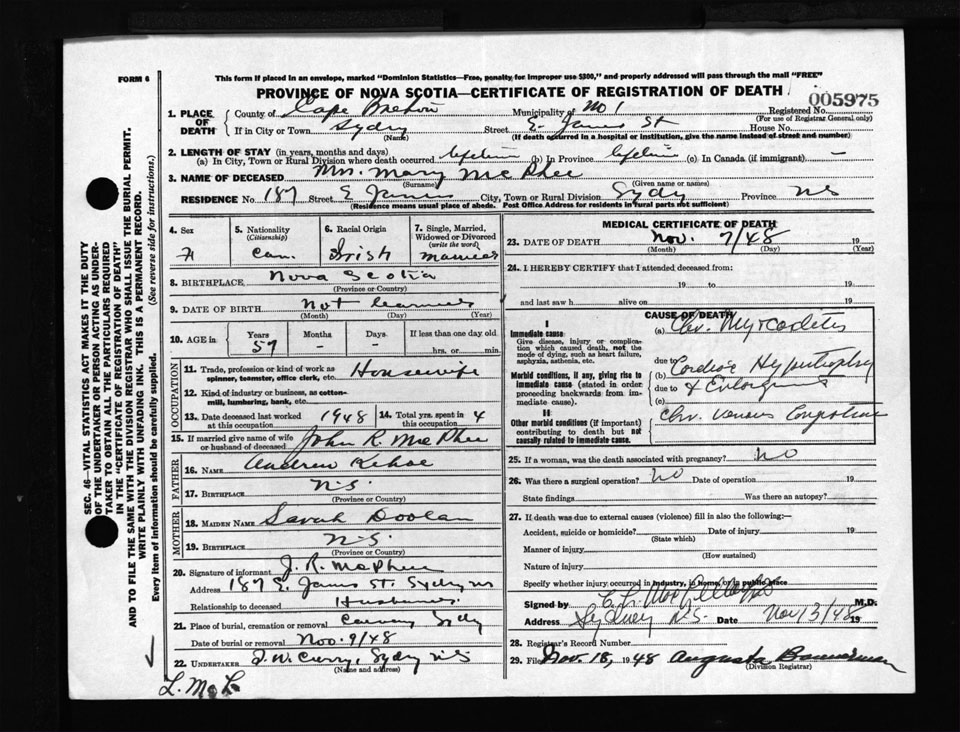 FORM 6
This form if placed in an envelope, marked "Dominion Statistics—Free, penalty for improper use $300," and properly addressed will pass through the mail "FREE"
PROVINCE OF NOVA SCOTIA—CERTIFICATE OF REGISTRATION OF DEATH
005975
1. PLACE OF DEATH
County of Cape Breton Municipality of No 1 Registered No.
(For use of Registrar General only)
If in City or Town Sydney Street E. James St House No.
(Name) (If death occurred in a hospital or institution, give the name instead of street and number)
2. LENGTH OF STAY (in years, months and days)
(a) In City, Town or Rural Division where death occurred lifetime (b) In Province lifetime (c) In Canada (if immigrant) —
3. NAME OF DECEASED Mrs. Mary McPhee
(Surname) (Given name or names)
RESIDENCE No. 187 Street E James City, Town or Rural Division Sydney Province NS
(Residence means usual place of abode. Post Office Address for residents in rural parts not sufficient)
4. Sex 5. Nationality (Citizenship) 6. Racial Origin 7. Single, Married, Widowed or Divorced (write the word)
F Can. Irish Married
8. BIRTHPLACE Nova Scotia
(Province or Country)
9. DATE OF BIRTH Not learned
(Month) (Day) (Year)
10. AGE in Years Months Days If less than one day old
57 – - hrs. or min.
OCCUPATION
11. Trade, profession or kind of work as spinner, teamster, office clerk, etc. Housewife
12. Kind of industry or business, as cotton-mill, lumbering, bank, etc.
13. Date deceased last worked at this occupation 1948 14. Total yrs. spent in this occupation 4
15. If married give name of wife or husband of deceased John R. McPhee
FATHER
16. NAME Andrew Kehoe
17. BIRTHPLACE N.S.
(Province or Country)
MOTHER
18. MAIDEN NAME Sarah Doolan
19. BIRTHPLACE N.S.
(Province or Country)
20. Signature of informant J. R. McPhee
Address 187 E. James St. Sydney NS
Relationship to deceased Husband.
21. Place of burial, cremation or removal Calvary Sydney
Date of burial or removal Nov. 9/48
22. UNDERTAKER J. W. Curry, Sydney NS
(Name and address)
MEDICAL CERTIFICATE OF DEATH
23. DATE OF DEATH Nov. 7/48 19
(Month) (Day) (Year)
24. I HEREBY CERTIFY that I attended deceased from:
19 to 19
and last saw h alive on 19
CAUSE OF DEATH
I
Immediate cause
Give disease, injury or complication which caused death, not the mode of dying, such as heart failure, asphyxia, asthenia, etc.
(a) Chr. Myocarditis
due to
Morbid conditions, if any, giving rise to immediate cause (stated in order proceeding backwards from immediate cause).
(b) Cardiac Hypertrophy
due to & Enlargement
(c)
II
Other morbid conditions (if important) contributing to death but not causally related to immediate cause.
Chr. Venous Congestion
25. If a woman, was the death associated with pregnancy? No
26. Was there a surgical operation? No Date of operation 19
State findings Was there an autopsy?
27. If death was due to external causes (violence) fill in also the following:—
Accident, suicide or homicide? Date of injury 19
(State which)
Manner of injury
(How sustained)
Nature of injury
Specify whether injury occurred in industry, in home, or in public place
Signed by M.D.
Address Sydney N.S. Date Nov 13/48 19
28. Registrar's Record Number
29. Filed Nov. 18, 1948 Augusta Bannerman
(Division Registrar)
L. McL
SEC. 46—VITAL STATISTICS ACT MAKES IT THE DUTY
OF THE UNDERTAKER OR PERSON ACTING AS UNDER-
TAKER TO OBTAIN ALL THE PARTICULARS REQUIRED
IN THE "CERTIFICATE OF REGISTRATION OF DEATH"
AND TO FILE THE SAME WITH THE DIVISION REGISTRAR WHO SHALL ISSUE THE BURIAL PERMIT.
WRITE PLAINLY WITH UNFADING INK. THIS IS A PERMANENT RECORD.
Every item of information should be carefully supplied. (See reverse side for instructions.)